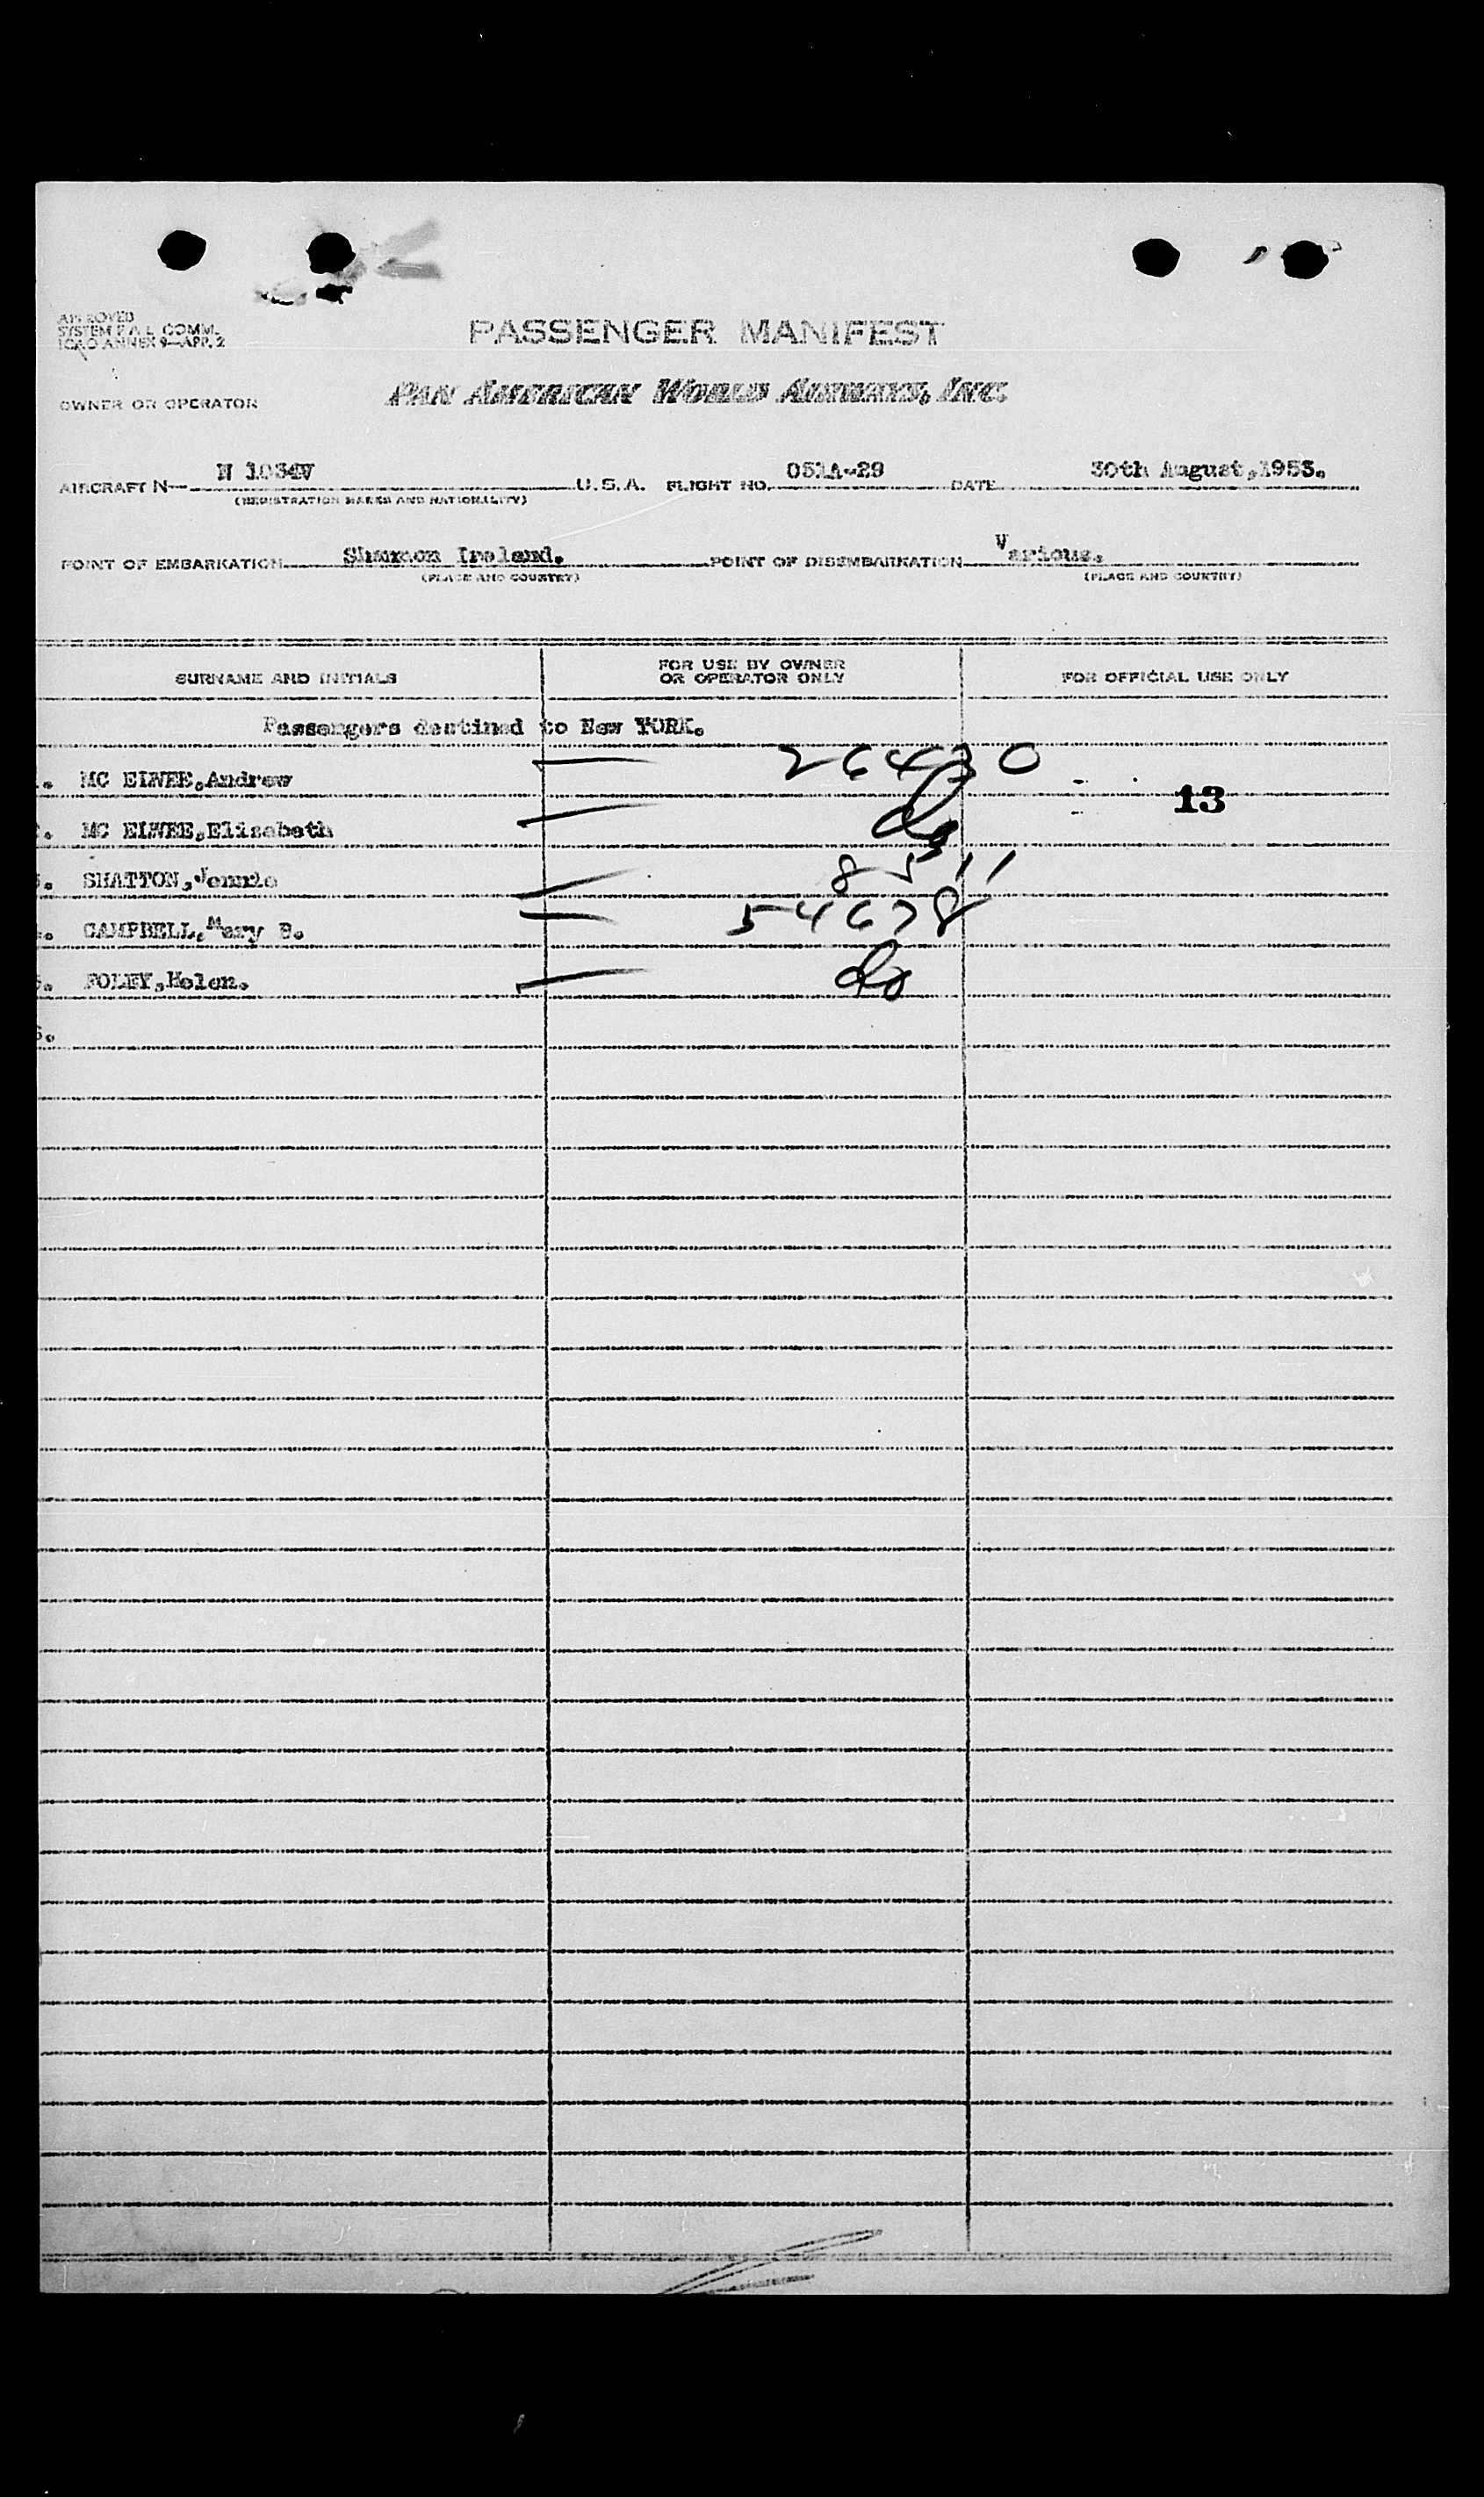 APPROVED
SYSTEM F.A.L. COMM.
ICAO ANNEX 9—APP. 2
PASSENGER MANIFEST
OWNER OR OPERATOR
PAN AMERICAN WORLD AIRWAYS, INC.
AIRCRAFT N— N 1034V U.S.A. FLIGHT NO. 051A-29 DATE 30th August,1953.
(REGISTRATION MARKS AND NATIONALITY)
POINT OF EMBARKATION Shannon Ireland. POINT OF DISEMBARKATION Various.
(PLACE AND COUNTRY) (PLACE AND COUNTRY)
SURNAME AND INITIALS FOR USE BY OWNER OR OPERATOR ONLY FOR OFFICIAL USE ONLY
Passengers destined to New YORK.
MC ELWEE,Andrew — 264
13
MC ELWEE,Elizabeth — do
SHATTON,Jennie — 8511
CAMPBELL,Mary B. — 54678
FOLEY,Helen. — do
6.